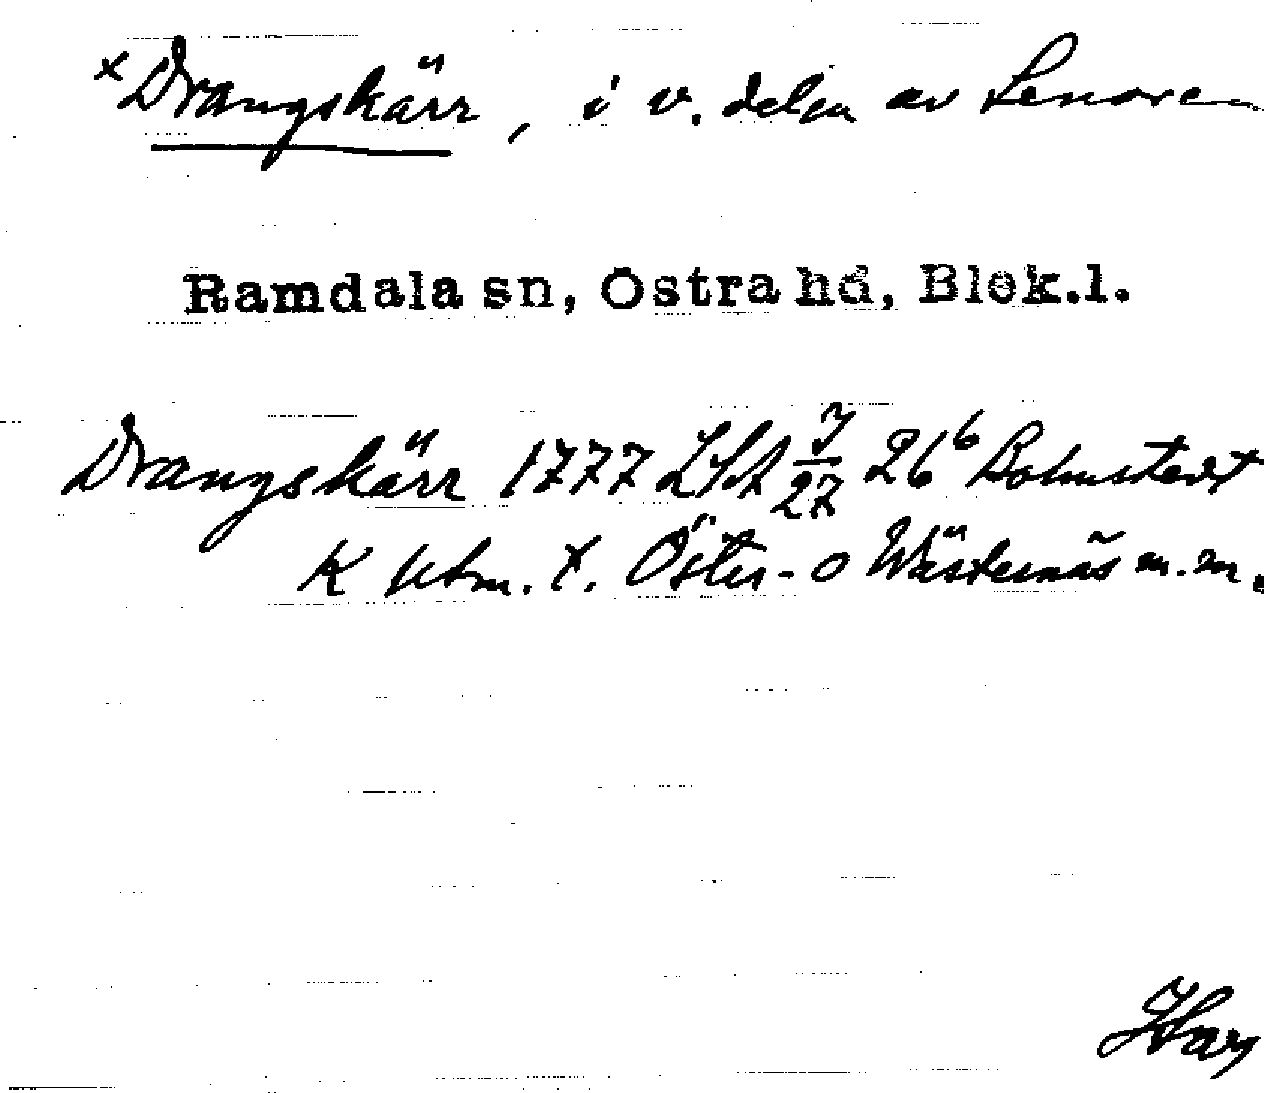 x Drangskärr, i v. delen av Senoren
Ramdala sn, Östra hd, Blek.l.
Drangskärr 1777 LSA 7/27 26⁶ Bohmstedt
K utm. t. Öster- o Wästernäs m.m.